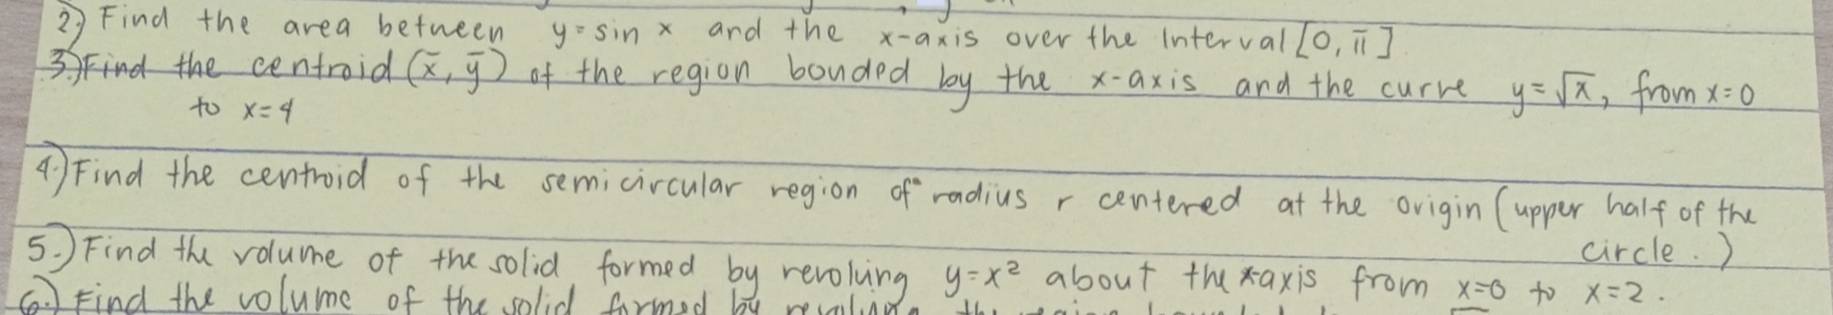 2.) Find the area between y=sin x and the x-axis over the Interval [0, π]
3.) Find the centroid (x̄, ȳ) of the region bouded by the x-axis and the curve y=√x, from x=0
to x=4
4.) Find the centroid of the semicircular region of radius r centered at the origin (upper half of the
circle.)
5.) Find the volume of the solid formed by revolving y=x² about the x-axis from x=0 to x=2.
6.) Find the volume of the solid formed by revolving the region